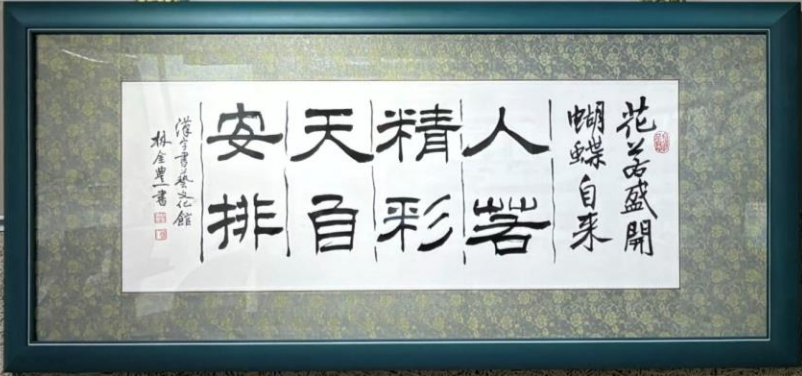 花若盛開
蝴蝶自来
人若
精彩
天自
安排
漢字書藝文化館
林金豐書